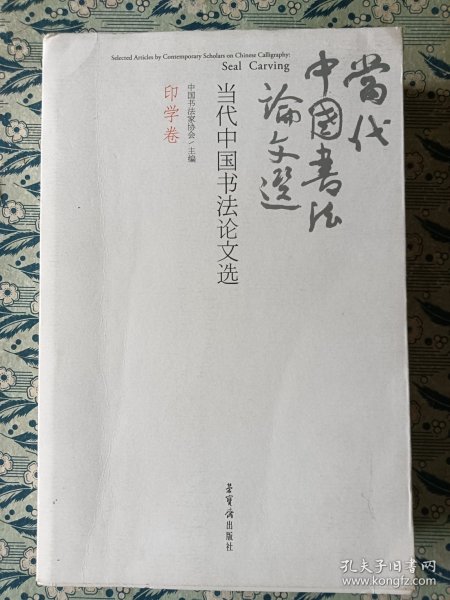 Selected Articles by Contemporary Scholars on Chinese Calligraphy:
Seal Carving
當代
中國書法
論文選
当代中国书法论文选
中国书法家协会/主编
印学卷
荣宝斋出版社
孔夫子旧书网
www.kongfz.com